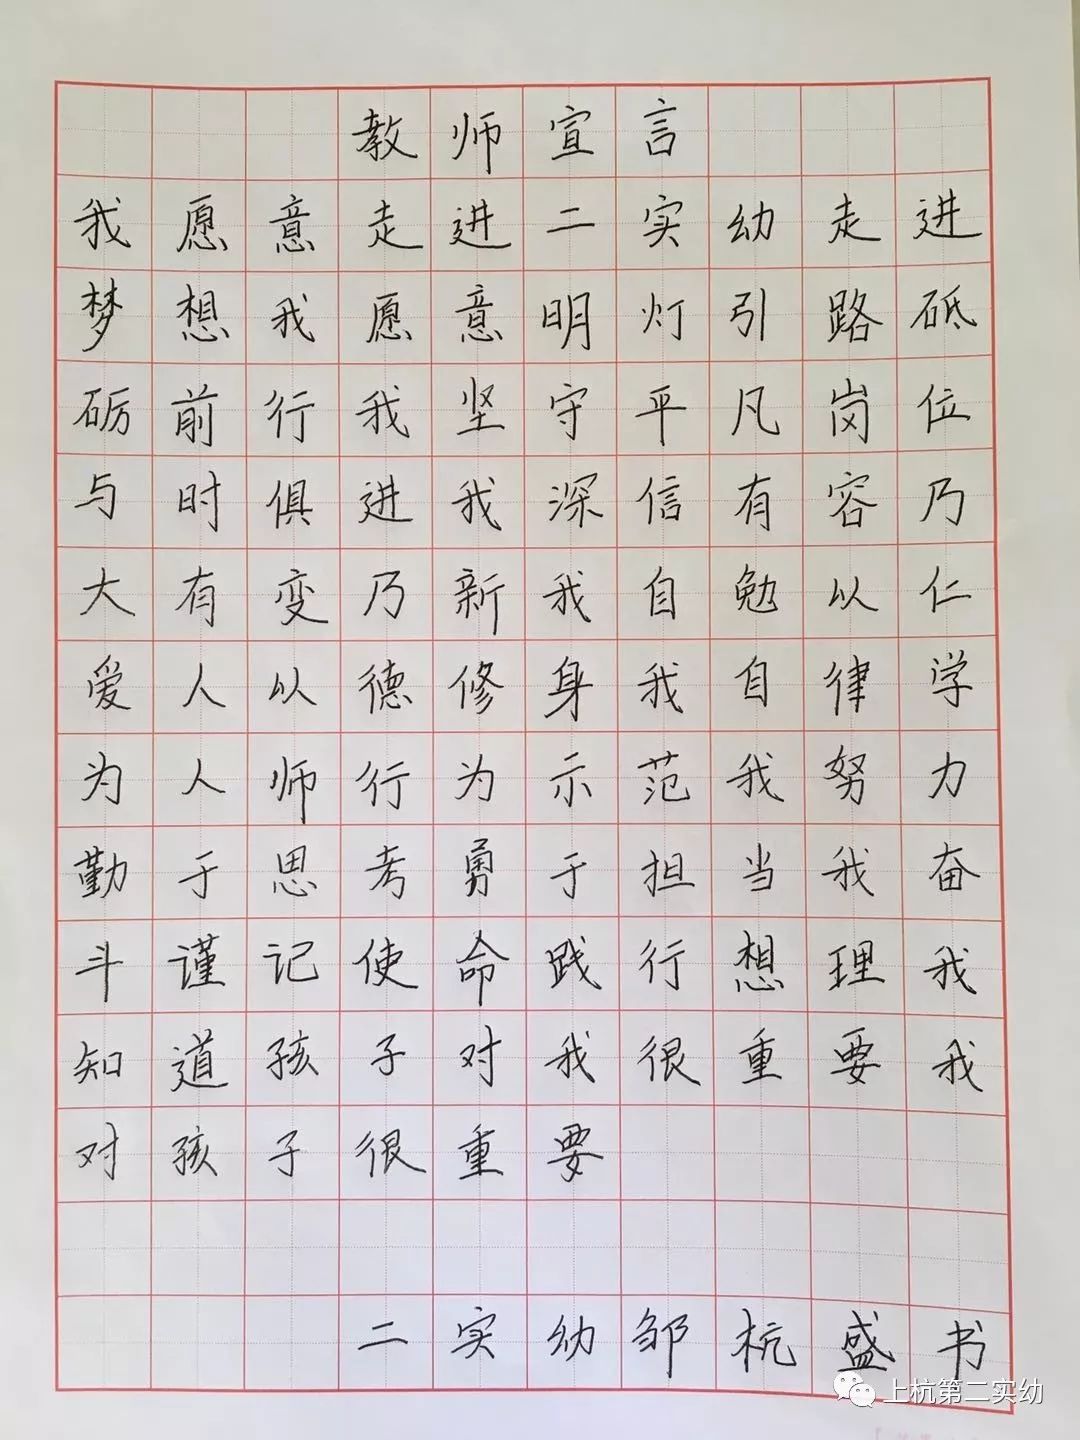 教师宣言
我愿意走进二实幼走进
梦想我愿意明灯引路砥
砺前行我坚守平凡岗位
与时俱进我深信有容乃
大有变乃新我自勉以仁
爱人以德修身我自律学
为人师行为示范我努力
勤于思考勇于担当我奋
斗谨记使命践行想理我
知道孩子对我很重要我
对孩子很重要
二实幼邹杭盛书
上杭第二实幼